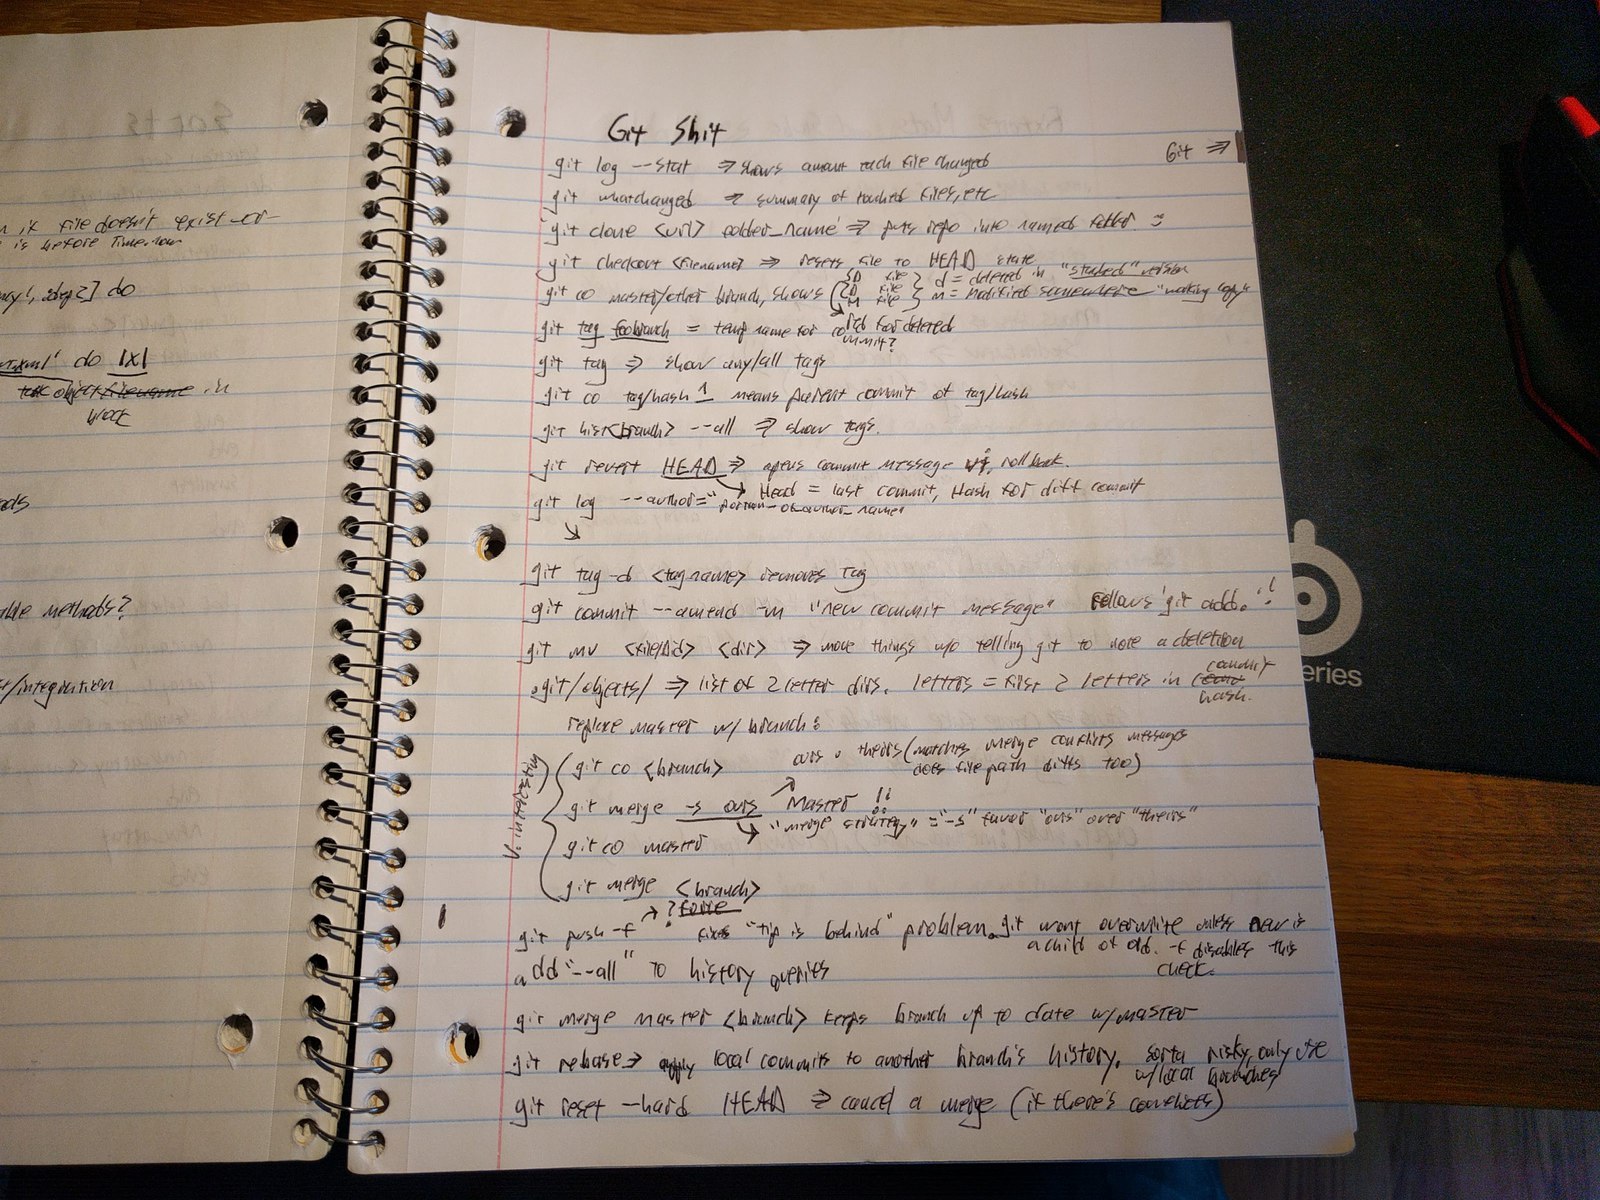 if file doesn't exist -or-
is before Time.now
do
do |x|
object filename in
block
methods?
/integration
Git Shit
Git ⇒
git log --stat ⇒ shows amount each file changed
git whatchanged ⇒ summary of touched files, etc
git clone <url> folder_name ⇒ puts repo into named folder. :)
git checkout <filename> ⇒ resets file to HEAD state
git co master/other branch, shows ( { D file } d = deleted in "stashed" version
D file
M file } m = modified somewhere "working copy"
git tag foobranch = temp name for deleted
commit?
git tag ⇒ show any/all tags
git co tag/hash ^ means parent commit of tag/hash
git hist <branch> --all ⇒ show tags.
git revert HEAD ⇒ opens commit message vi, rollback.
Head = last commit, Hash for diff commit
git log --author="portion-of-author_name"
git tag -d <tagname> removes tag
git commit --amend -m "new commit message" Follows 'git add.'!
git mv <file/dir> <dir> ⇒ move things w/o telling git to note a deletion
.git/objects/ ⇒ list of 2 letter dirs. letters = first 2 letters in commit
hash.
replace master w/ branch:
V. interesting
git co <branch>
ours, theirs (matches merge conflicts messages
does file path diffs too)
git merge -s ours Master !!
"merge strategy" = "-s" favor "ours" over "theirs"
git co master
git merge <branch>
? force
git push -f fixes "tip is behind" problem. git wont overwrite unless new is
a child of old. -f disables this
check.
add "--all" to history queries
git merge master <branch> keeps branch up to date w/ master
git rebase → apply local commits to another branch's history. sorta risky, only use
w/ local branches
git reset --hard HEAD ⇒ cancel a merge (if there's conflicts)
eries